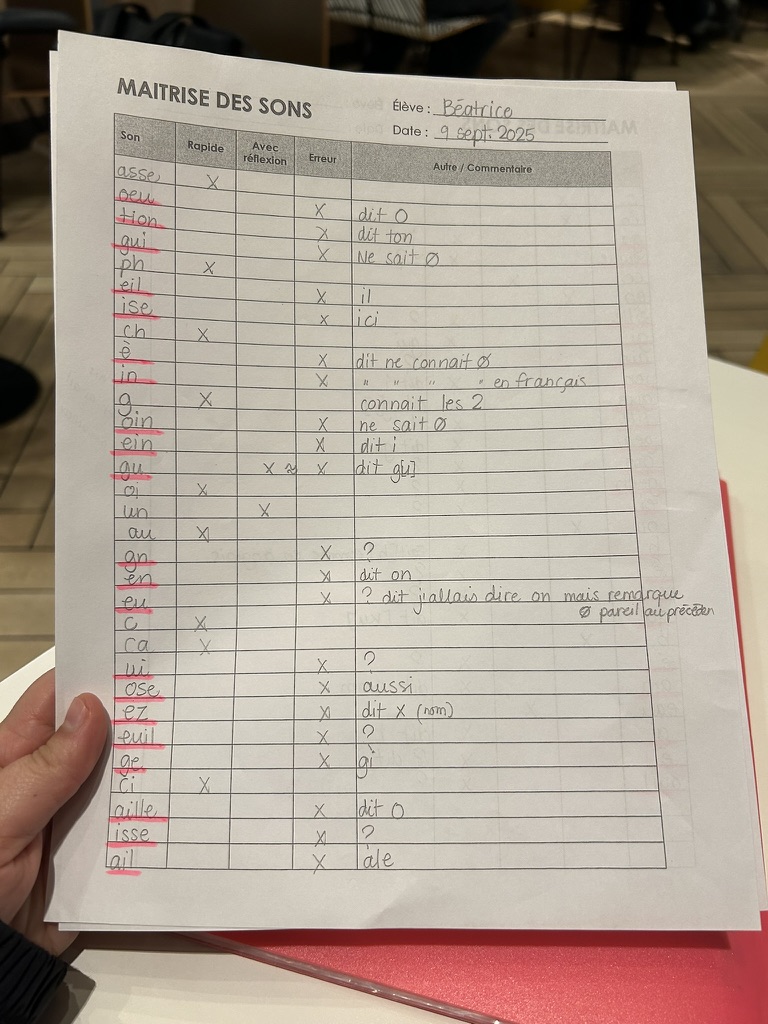 MAITRISE DES SONS
Élève : Béatrice
Date : 9 sept. 2025
Son Rapide Avec réflexion Erreur Autre / Commentaire
asse X
oeu X dit O
tion X dit ton
gui X Ne sait Ø
ph X
eil X il
ise X ici
ch X
è X dit ne connait Ø
in X " " " " en français
g X connait les 2
oin X ne sait Ø
ein X dit i
gu X ≈ X dit g[u]
oi X
un X
au X
gn X ?
en X dit on
eu X ? dit j'allais dire on mais remarque
Ø pareil au précéden
c X
ca X
ui X ?
ose X aussi
ez X dit X (nom)
euil X ?
ge X gi
ci X
aille X dit O
isse X ?
ail X ale